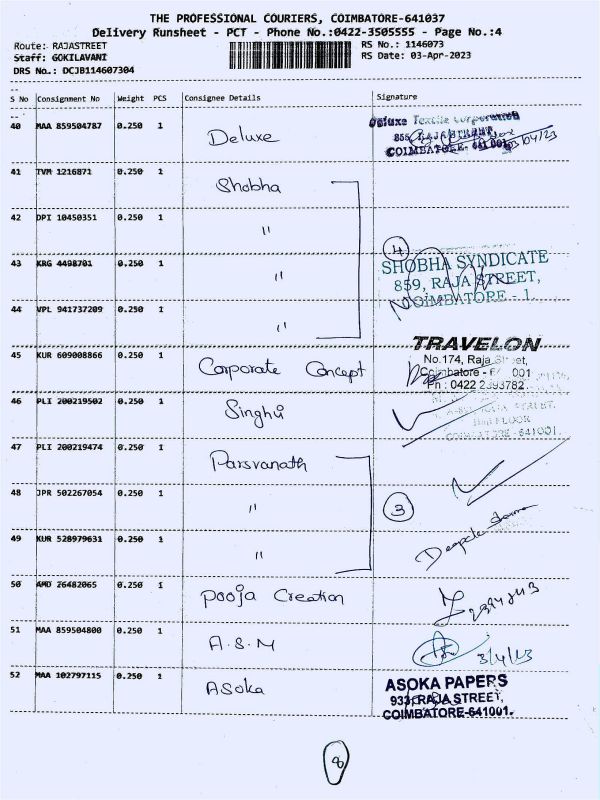 THE PROFESSIONAL COURIERS, COIMBATORE-641037
Delivery Runsheet - PCT - Phone No.:0422-3505555 - Page No.:4
Route: RAJASTREET
RS No.: 1146073
Staff: GOKILAVANI
RS Date: 03-Apr-2023
DRS No.: DCJB114607304
S No Consignment No Weight PCS Consignee Details Signature
40 MAA 859504787 0.250 1 Deluxe
Deluxe Textile Corporation
855, RAJA STREET,
COIMBATORE- 641 001
41 TVM 1216871 0.250 1 Shobha
42 DPI 10450351 0.250 1 "
43 KRG 4498701 0.250 1 "
4
SHOBHA SYNDICATE
859, RAJA STREET,
COIMBATORE - 1.
44 VPL 941737209 0.250 1 "
45 KUR 609008866 0.250 1 Corporate Concept
TRAVELON
No.174, Raja Street,
Coimbatore - 641 001
Ph : 0422 2393782
46 PLI 200219502 0.250 1 Singhvi
FLOOR
COIMBATORE-641001.
47 PLI 200219474 0.250 1 Parsvanath
48 JPR 502267054 0.250 1 "
3
49 KUR 528979631 0.250 1 "
50 AMD 26482065 0.250 1 Pooja Creation
51 MAA 859504800 0.250 1 A.S.M
3/4/23
52 MAA 102797115 0.250 1 Asoka
ASOKA PAPERS
933, RAJA STREET,
COIMBATORE-641001.
8